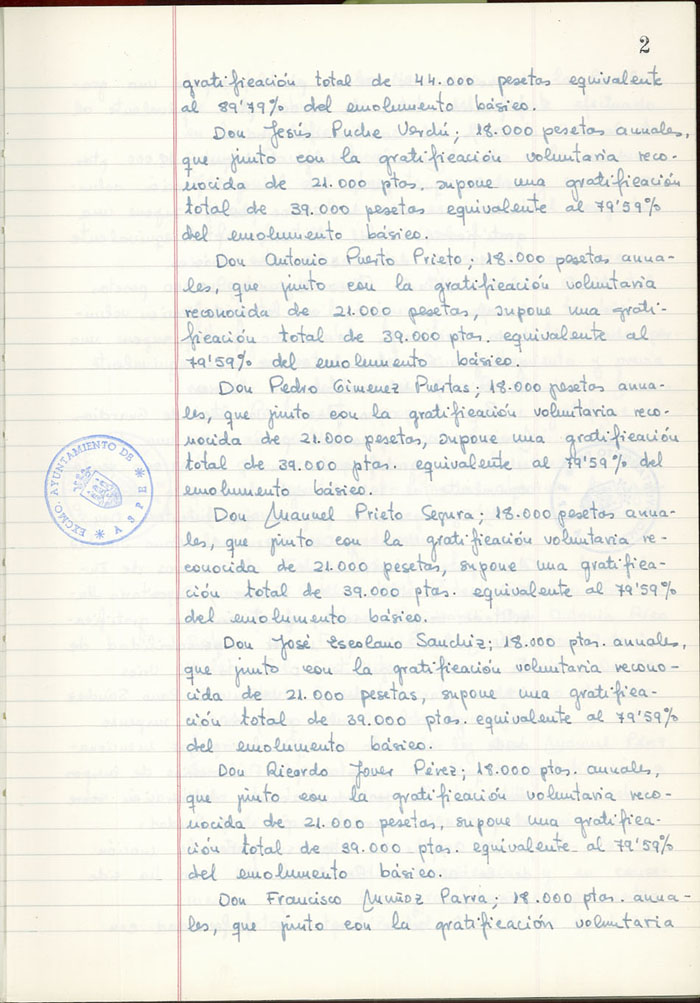 2
gratificación total de 44.000 pesetas equivalente
al 89'79% del emolumento básico.
Don Jesús Puche Verdú; 18.000 pesetas anuales,
que junto con la gratificación voluntaria reco-
nocida de 21.000 ptas. supone una gratificación
total de 39.000 pesetas equivalente al 79'59%
del emolumento básico.
Don Antonio Puerto Prieto; 18.000 pesetas anua-
les, que junto con la gratificación voluntaria
reconocida de 21.000 pesetas, supone una grati-
ficación total de 39.000 ptas. equivalente al
79'59% del emolumento básico.
Don Pedro Gimenez Puertas; 18.000 pesetas anua-
les, que junto con la gratificación voluntaria reco-
nocida de 21.000 pesetas, supone una gratificación
total de 39.000 ptas. equivalente al 79'59% del
emolumento básico.
EXCMO. AYUNTAMIENTO DE * ASPE *
Don Manuel Prieto Segura; 18.000 pesetas anua-
les, que junto con la gratificación voluntaria re-
conocida de 21.000 pesetas, supone una gratifica-
ción total de 39.000 ptas. equivalente al 79'59%
del emolumento básico.
Don José Escolano Sanchiz; 18.000 ptas. anuales,
que junto con la gratificación voluntaria recono-
cida de 21.000 pesetas, supone una gratifica-
ción total de 39.000 ptas. equivalente al 79'59%
del emolumento básico.
Don Ricardo Jover Pérez; 18.000 ptas. anuales,
que junto con la gratificación voluntaria reco-
nocida de 21.000 pesetas, supone una gratifica-
ción total de 39.000 ptas. equivalente al 79'59%
del emolumento básico.
Don Francisco Muñoz Parra; 18.000 ptas. anua-
les, que junto con la gratificación voluntaria